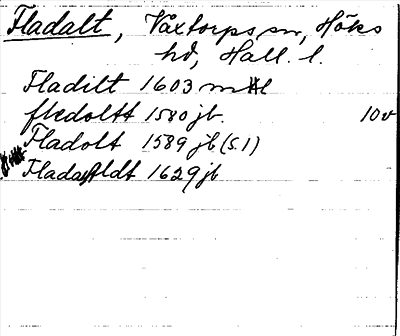 Fladalt, Våxtorps sn, Höks
hd, Hall. l.
Fladilt 1603 mtl
fledoltt 1580 jb. 10v
Fladolt 1589 jb (S. 1)
Fladaltdt 1629 jb